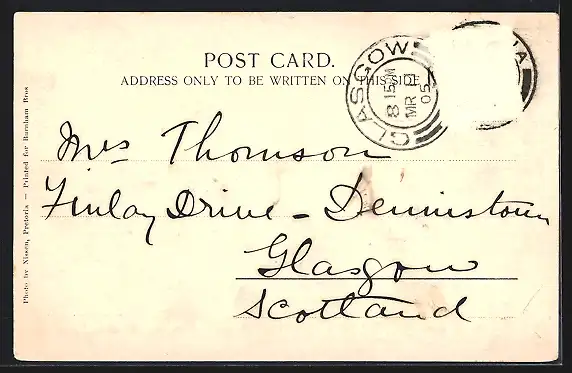 POST CARD.
ADDRESS ONLY TO BE WRITTEN ON THIS SIDE.
GLASGOW
8 15 M
MR
05
GLASGOW
IA
Mrs Thomson
Finlay Drive - Dennistoun
Glasgow
Scotland
Photo by Nissen, Pretoria — Printed for Barnham Bros